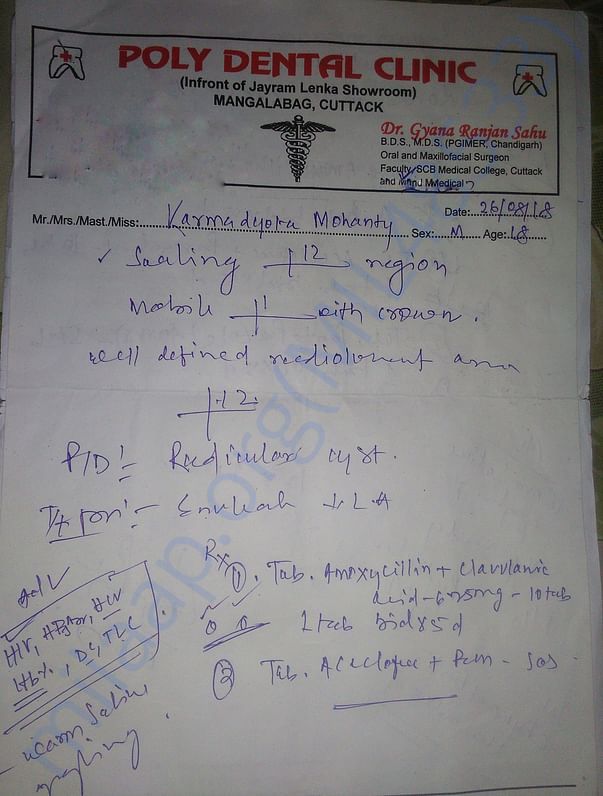 POLY DENTAL CLINIC
(Infront of Jayram Lenka Showroom)
MANGALABAG, CUTTACK
Dr. Gyana Ranjan Sahu
B.D.S., M.D.S. (PGIMER, Chandigarh)
Oral and Maxillofacial Surgeon
Faculty, SCB Medical College, Cuttack
and Medical
Date: 26/08/18
Mr./Mrs./Mast./Miss: Karmadyota Mohanty Sex: M Age: 18
✓ Swelling 12 region
Mobile 1 with crown.
well defined radiolucent area
12.
P/D:- Radicular cyst.
Rx
Adv
① . Tab. Amoxycillin + Clavulanic
acid - 625mg - 10 tab
1 tab bid x 5 d
HIV,
Hb%, DC, TLC
② Tab. + - sos
- warm saline
milaap.org